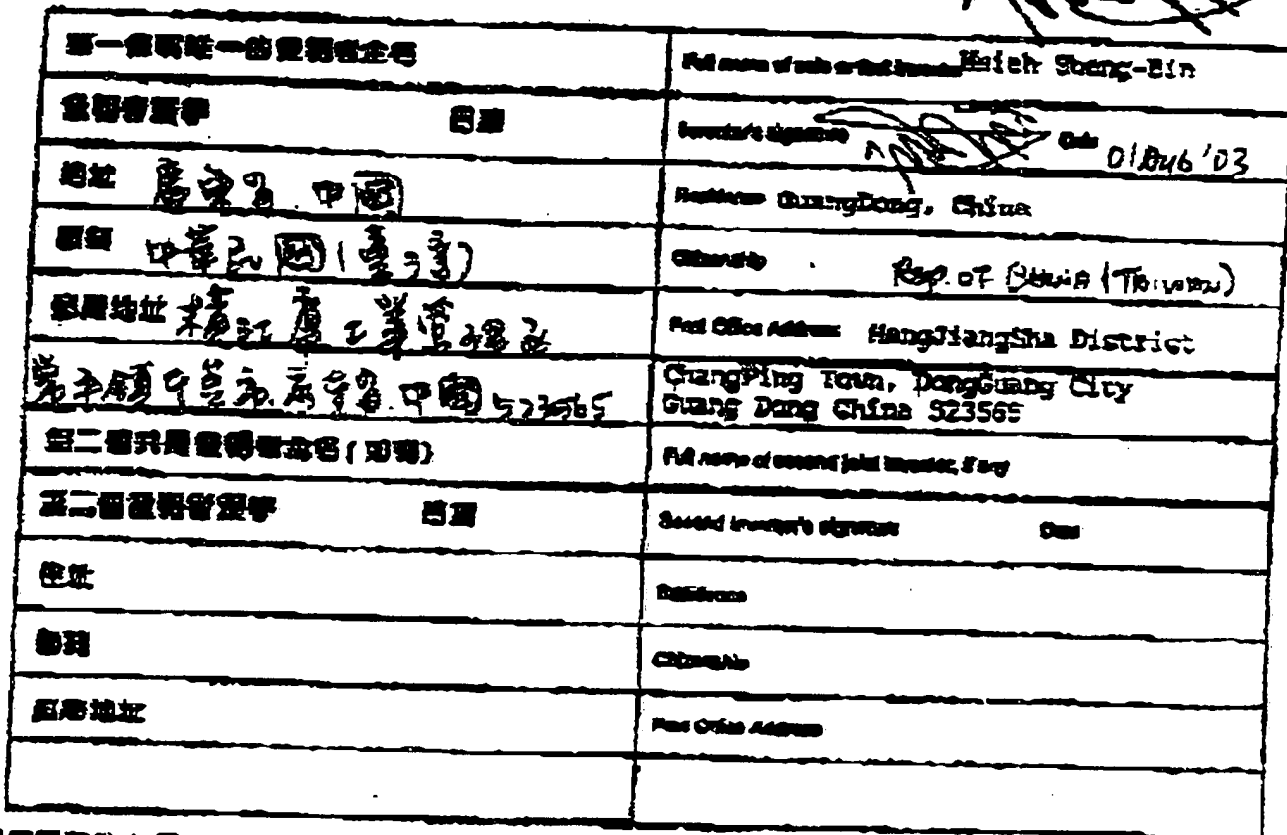 第一個或唯一的發明者全名
Full name of sole or first inventor Hsieh Sheng-Bin
發明者簽字 日期
Inventor's signature Date 01 Aug '03
地址 廣東省 中國
Residence GuangDong, China
國籍 中華民國(臺灣)
Citizenship Rep. of China (Taiwan)
郵局地址
Post Office Address HangJiangSha District
523565
ChangPing Town, DongGuang City
Guang Dong China 523565
第二個共同發明者全名(如有)
Full name of second joint inventor, if any
第二個發明者簽字 日期
Second inventor's signature Date
住址
Residence
國籍
Citizenship
郵局地址
Post Office Address